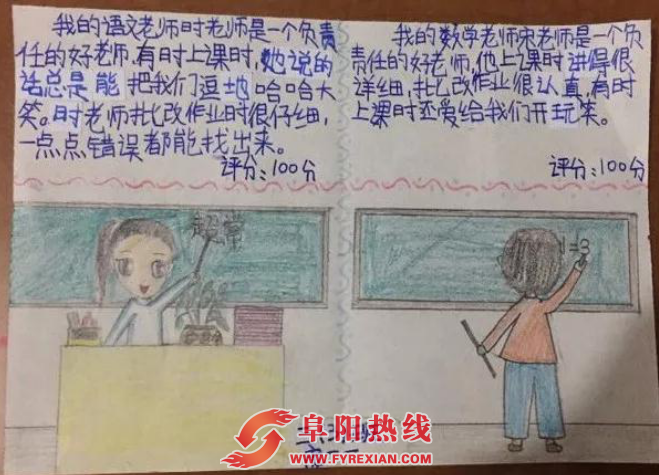 我的语文老师时老师是一个负责
任的好老师,有时上课时,她说的
话总是能把我们逗地哈哈大
笑。时老师批改作业时很仔细,
一点点错误都能找出来。
评分:100分
我的数学老师宋老师是一个负
责任的好老师,他上课时讲得很
详细,批改作业很认真,有时
上课时还爱给我们开玩笑。
评分:100分
=3
阜阳热线
WWW.FYREXIAN.COM